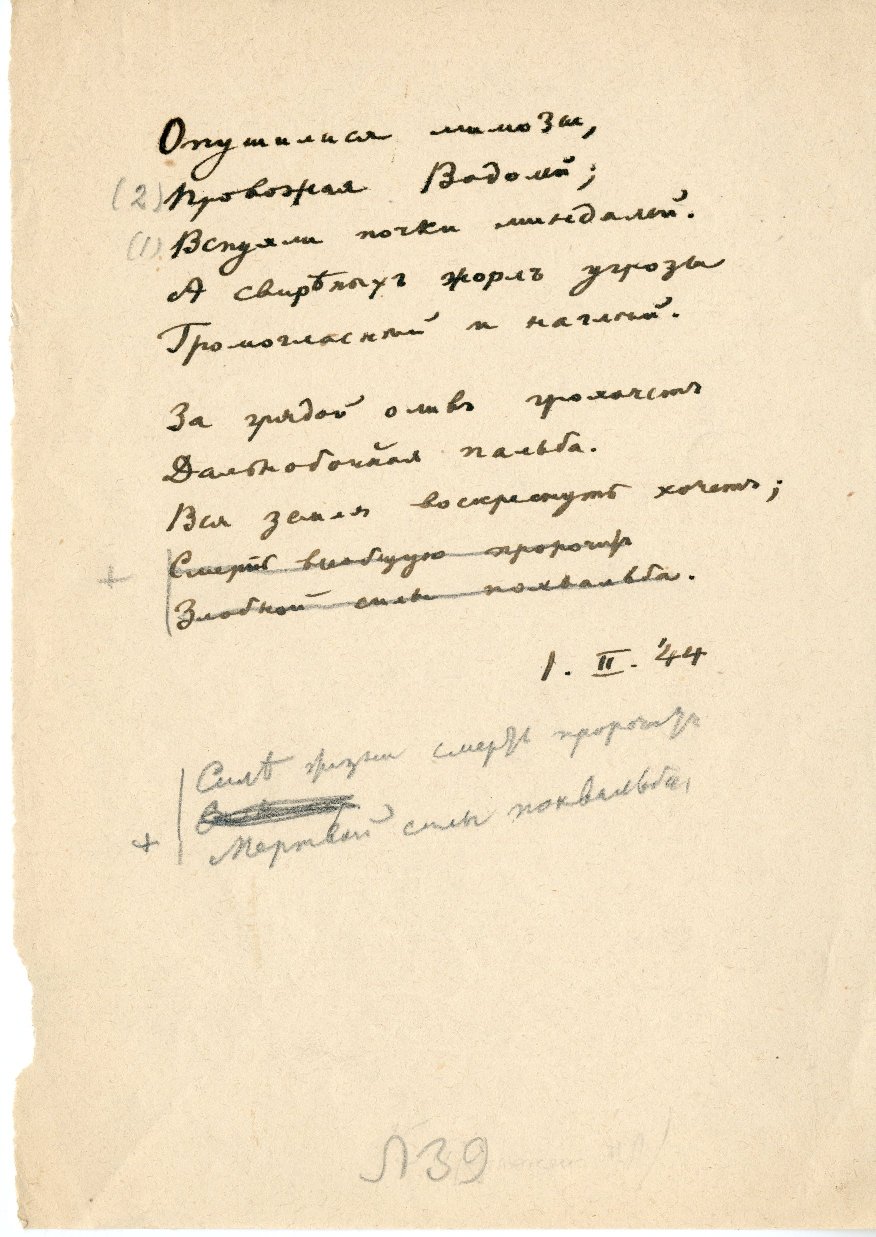 Опушилися мимозы,
(2) Провожая Водолей;
(1) Вспухли почки миндалей.
А свирѣпыхъ жерлъ угрозы
Громогласней и наглей.
За грядой оливъ грохочетъ
Дальнобойная пальба.
Вся земля воскреснуть хочетъ;
+ Смерть всеобщую пророчитъ
Злобной силы похвальба.
1. II. '44
Силѣ жизни смерть пророчитъ
+ Мертвой силы похвальба.
Л 39